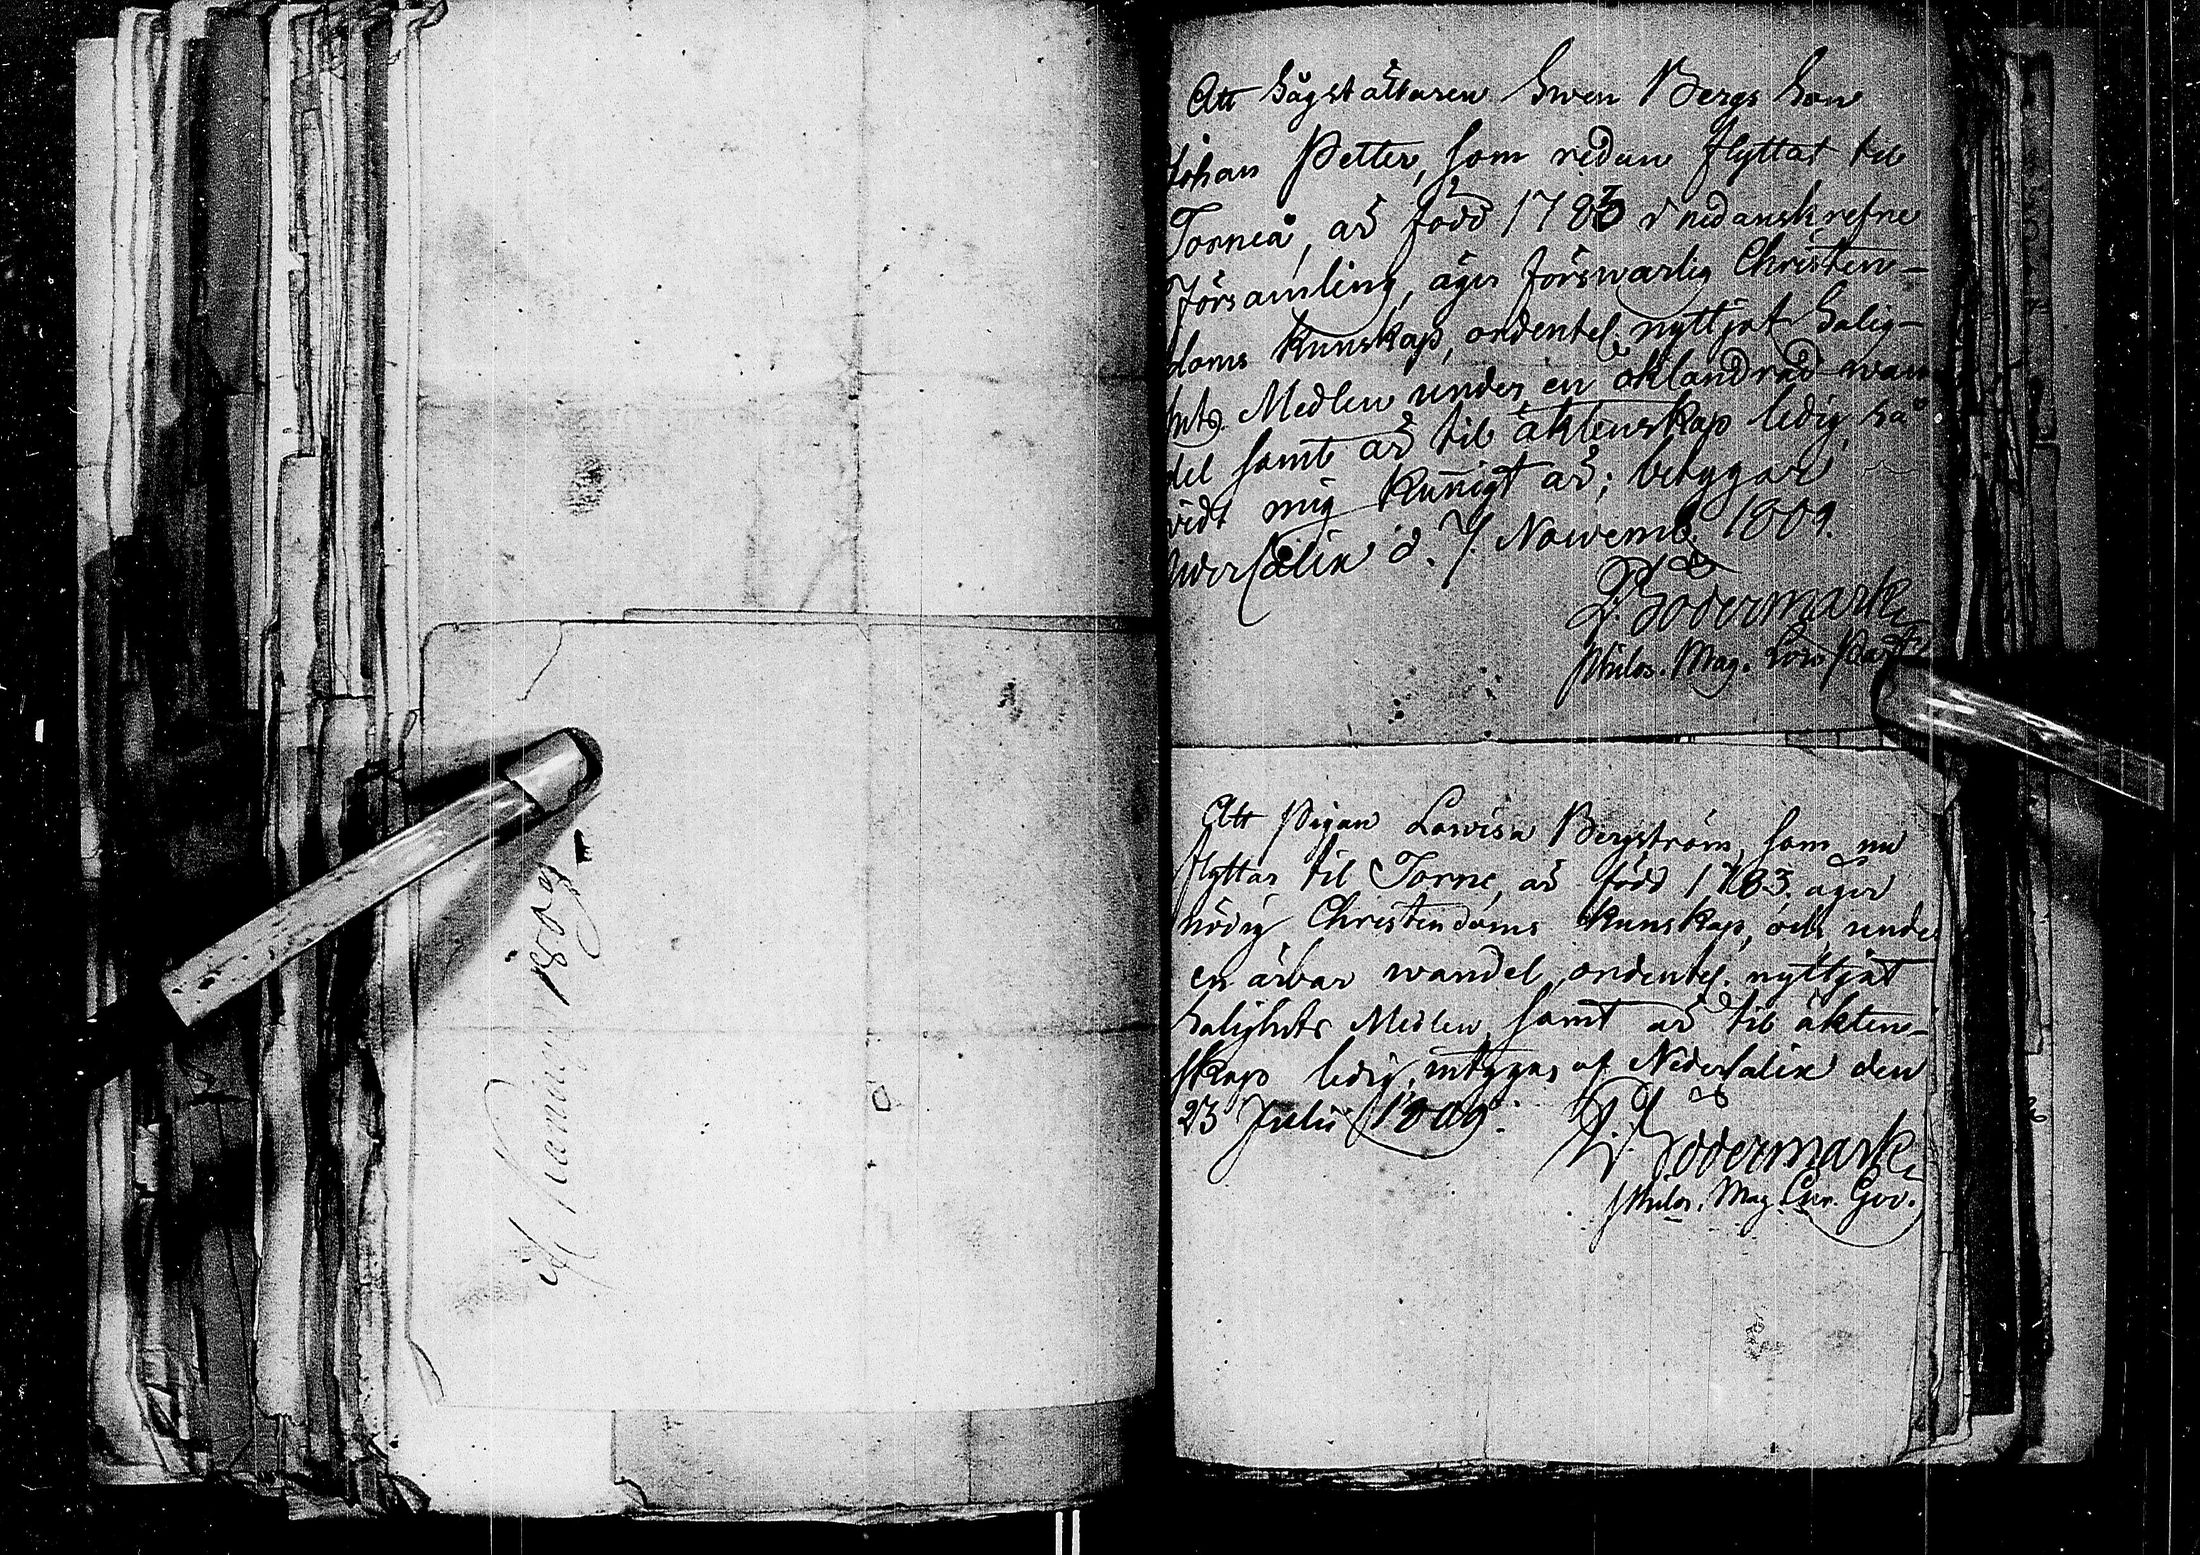 Attester 1809
Att Sågställaren Swen Bergs Son
Johan Petter, som redan flyttat til
Torneå, är född 1783 i nedanskrefne
Församling, äger förswarlig Christen-
doms Kunskap, ordentel. nyttjat Salig-
hets Medlen under en oklandrad wan
del samt är til äktenskap ledig, så
vidt mig kunnigt är; betygar
NederCalix d. 7. Novemb. 1809.
Södermark
Philos. Mag. Past.
Att Pigan Lovisa Bergström, som nu
flyttar til Torne, är född 1783, äger
nödig Christendoms kunskap, och unde
en ärbar wandel, ordentel. nyttjat
Salighets Medlen, samt är til äkten-
skap ledig, intygas af NederCalix den
23 Julii 1809.
Södermark
Philos. Mag.